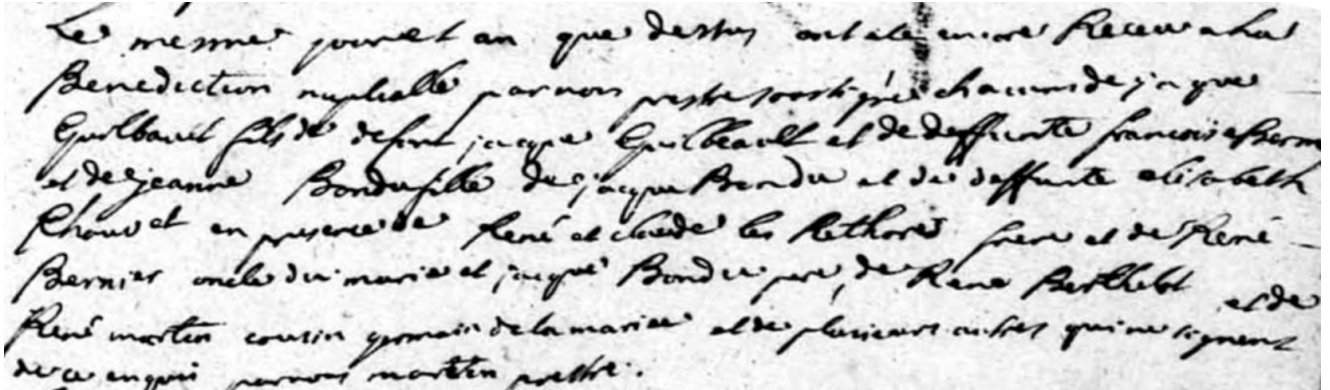 Le mesme jour et an que dessus ont ete encore Receu a La
Benediction nuptialle par nous prestre soussigné chacuns de jaque
Guilbault fils de defunt jacque Guilbeault et de deffunte francoise Berni
et de jeanne Bondu fille de jacque Bondu et de deffunte elisabeth
Chauvet en presence de René et claude les Rethoré frere et de René
Bernier oncle du marie et jacque Bondu pere, de Rene Berthelot et de
René martin cousin germain de la mariee et de plusieurs autres qui ne signent
de ce enquis par nous martin prestre.